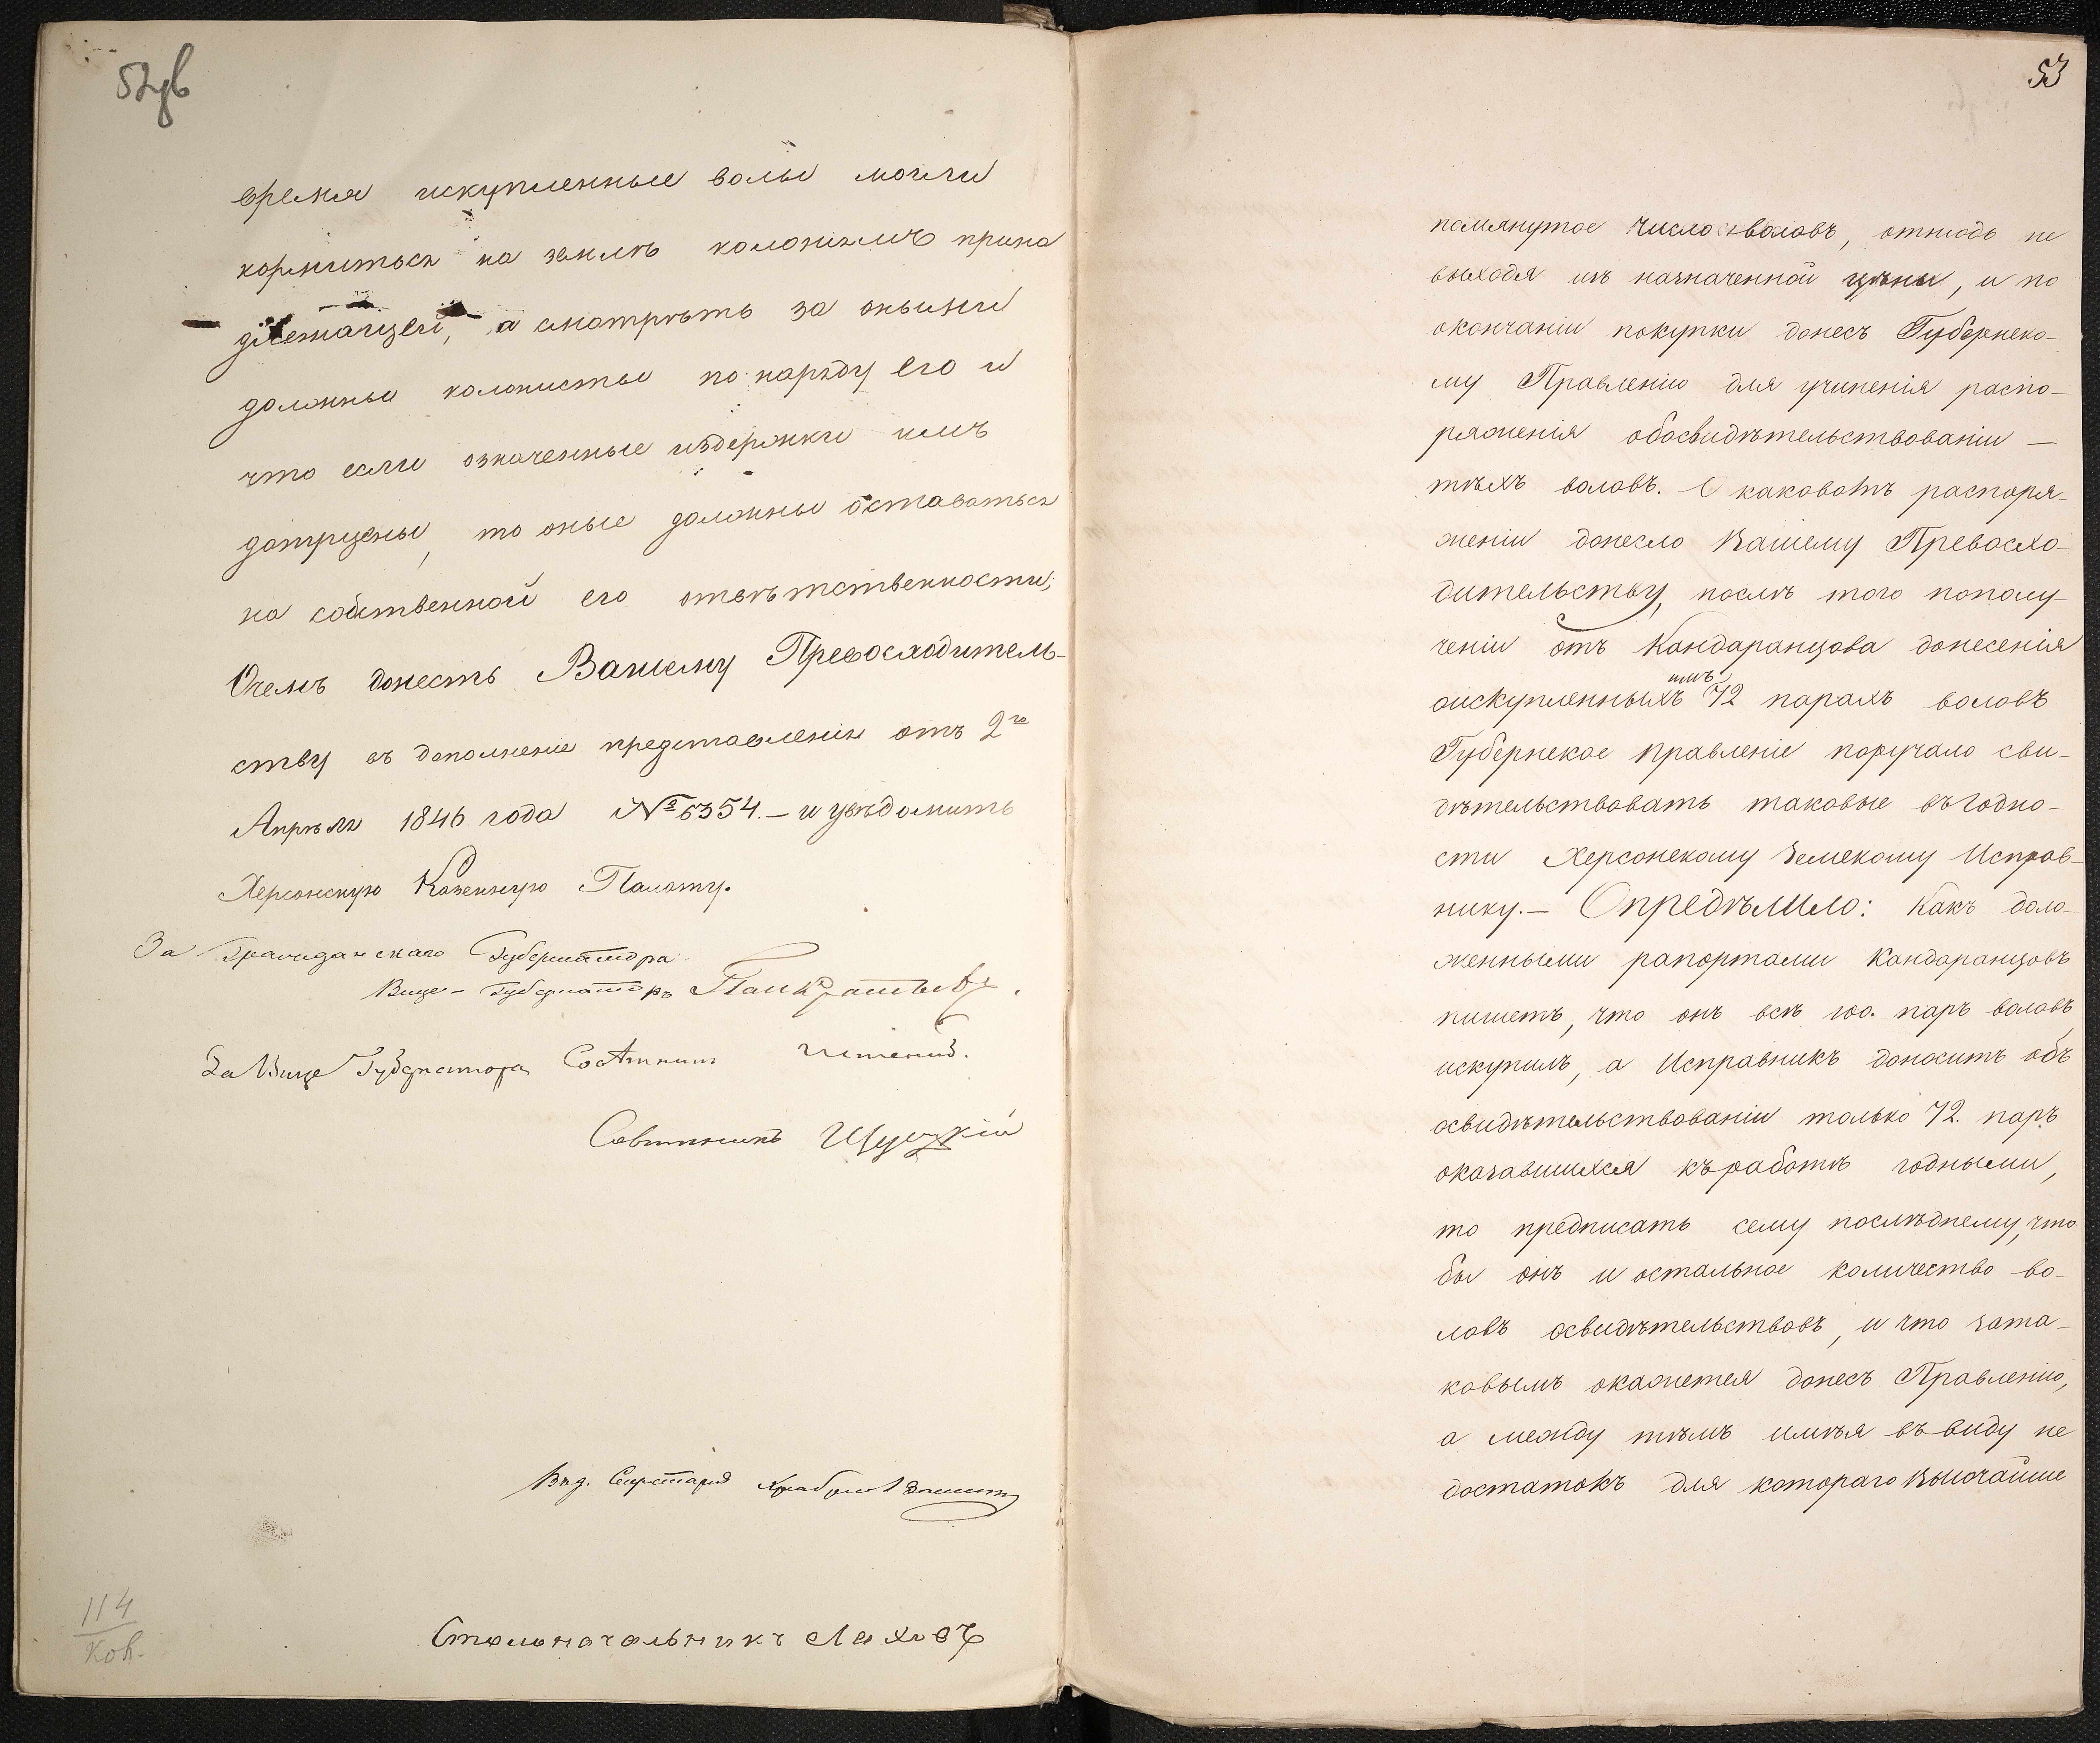 52 об
время искупленные волы могли
кормиться на землѣ колонiямъ прина
длежащей, а смотрѣть за оными
должны колонисты по наряду его и
что если означенные издержки имъ
допущены, то оные должны оставаться
на собственной его отвѣтственности;
Очемъ донесть Вашему Превосходитель-
ству въ дополненiе представленiя отъ 2го
Апрѣля 1846 года № 6354. – и увѣдомить
Херсонскую Казенную Палату.
За Гражданскаго Губернатора
Вице-Губернаторъ Панкратьевъ.
За Вице Губернатора Совѣтникъ
Совѣтникъ
Секретаря
Столоначальникъ Ляховъ
114
Ков.
53
помянутое число воловъ, отнюдь не
выходя изъ назначенной цѣны, и по
окончанiи покупки донесъ Губернско-
му Правленiю для учиненiя распо-
ряженiя обосвидѣтельствованiи –
тѣхъ воловъ. О каковомъ распоря-
женiи донесло Вашему Превосхо-
дительству, послѣ того пополу-
ченiи отъ Кандаранцова донесенiя
имъ
оискупленныхъ 72 парахъ воловъ
Губернское Правленiе поручало сви-
дѣтельствовать таковые въ годно-
сти Херсонскому Земскому Исправ-
нику. – Опредѣлило: Какъ доло-
женными рапортами Кандаранцовъ
пишетъ, что онъ всѣ 100. паръ воловъ
искупилъ, а Исправникъ доноситъ объ
освидѣтельствованiи только 72. паръ
оказавшихся къ работѣ годными,
то предписать сему послѣднему, что
бы онъ и остальное количество во-
ловъ освидѣтельствовъ, и что зата-
ковымъ окажется донесъ Правленiю,
а между тѣмъ имѣя въ виду не
достатокъ для котораго Высочайше